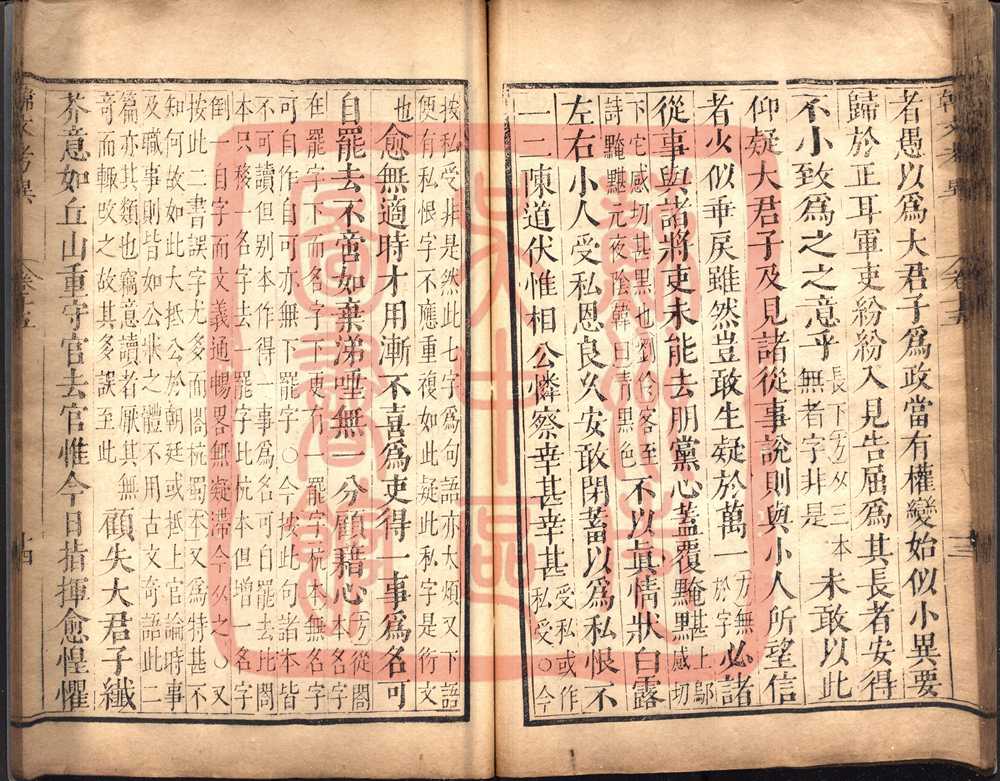 者愚以爲大君子爲政當有權變始似小異要
歸於正耳軍吏紛紛入見告屈爲其長者安得
不小致爲之之意乎
長下方从三本
無者字非是
未敢以此
仰疑大君子及見諸從事說則與小人所望信
者火似乖戾雖然豈敢生疑於萬一
方無
於字
必諸
從事與諸將吏未能去朋黨心蓋覆黤黮
上鄔
感切
下它感切甚黑也劉伶客至
詩黤黮元夜陰韓曰青黑色
不以眞情狀白露
左右小人受私恩良久安敢閉蓄以爲私恨不
一二陳道伏惟相公憐察幸甚幸甚
受私或作
私受〇今
按私受非是然此七字爲句語亦大煩又下語
便有私恨字不應重複如此疑此私字是衍文
也
愈無適時才用漸不喜爲吏得一事爲名可
自罷去不啻如棄涕唾無一分顧藉心
方從閣
本名字
在罷字下而名字下更有一罷字杭本無名字
可自作自可亦無下罷字〇今按此句諸本皆
不可讀但别本作得一事爲名可自罷去比閣
本只移一名字去一罷字比杭本但增一名字
倒一自字而文義通暢畧無疑滯今从之〇又
按此二書誤字尤多而閣杭蜀本又爲特甚不
知何故如此大抵公於朝廷或抵上官論時事
及職事則皆如公狀之體不用古文奇語此二
篇亦其類也竊意讀者厭其無
奇而輒改之故其多誤至此
顧失大君子纖
芥意如丘山重守官去官惟今日指揮愈惶懼
十四